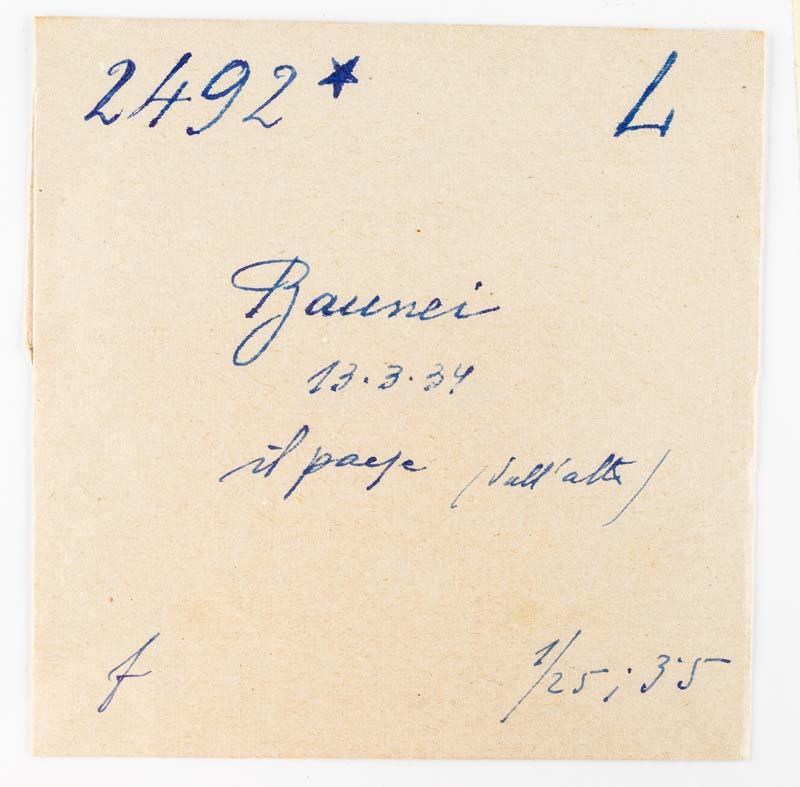 2492* L
Baunei
13.3.34
il paese (dall'alto)
f 1/25; 3.5